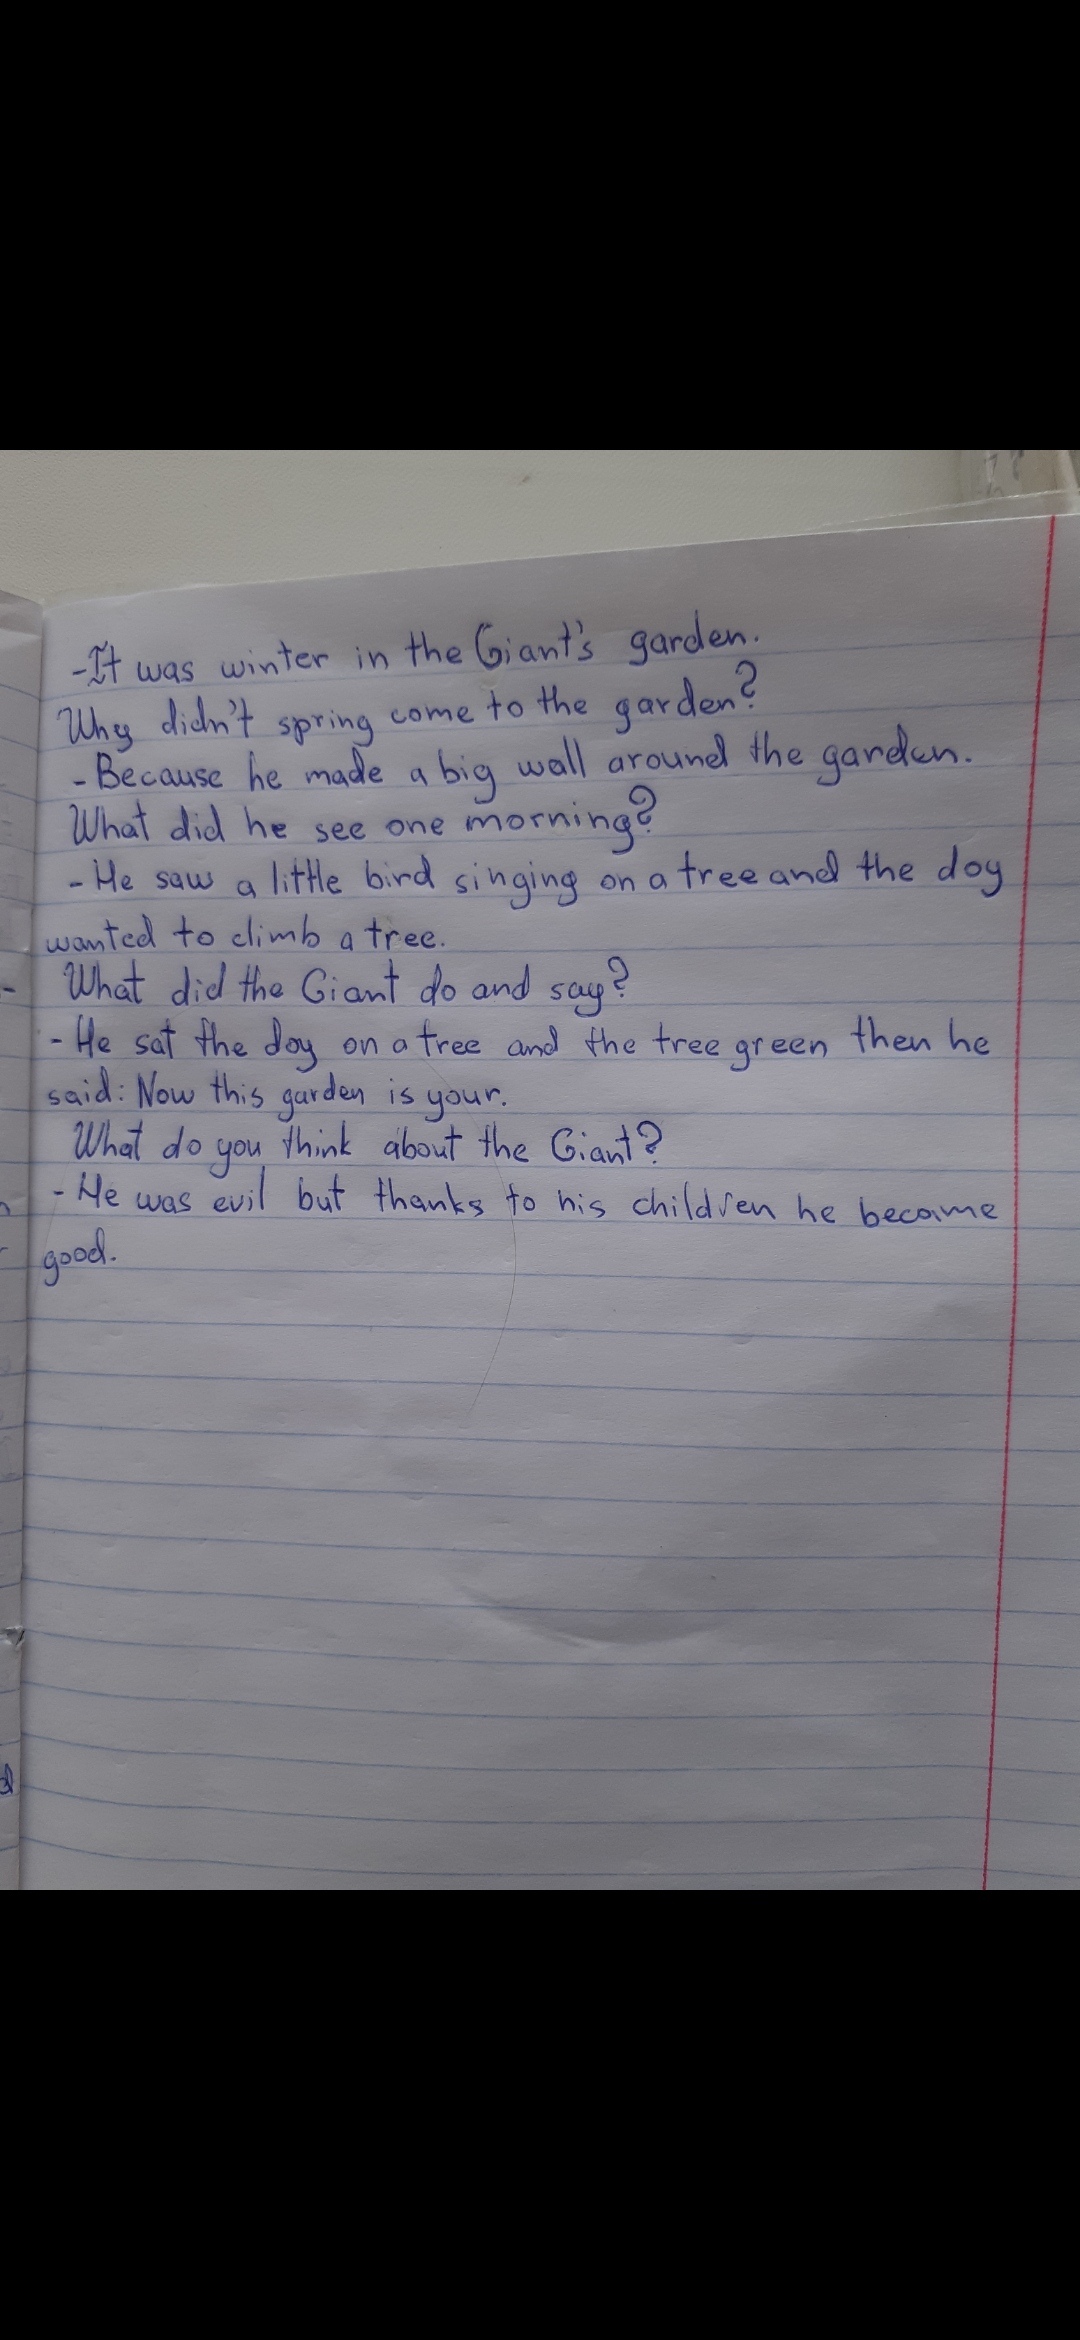 -It was winter in the Giant's garden.
Why didn't spring come to the garden?
- Because he made a big wall around the garden.
What did he see one morning?
- He saw a little bird singing on a tree and the doy
wanted to climb a tree.
What did the Giant do and say?
- He sat the doy on a tree and the tree green then he
said: Now this garden is your.
What do you think about the Giant?
- He was evil but thanks to his children he became
good.